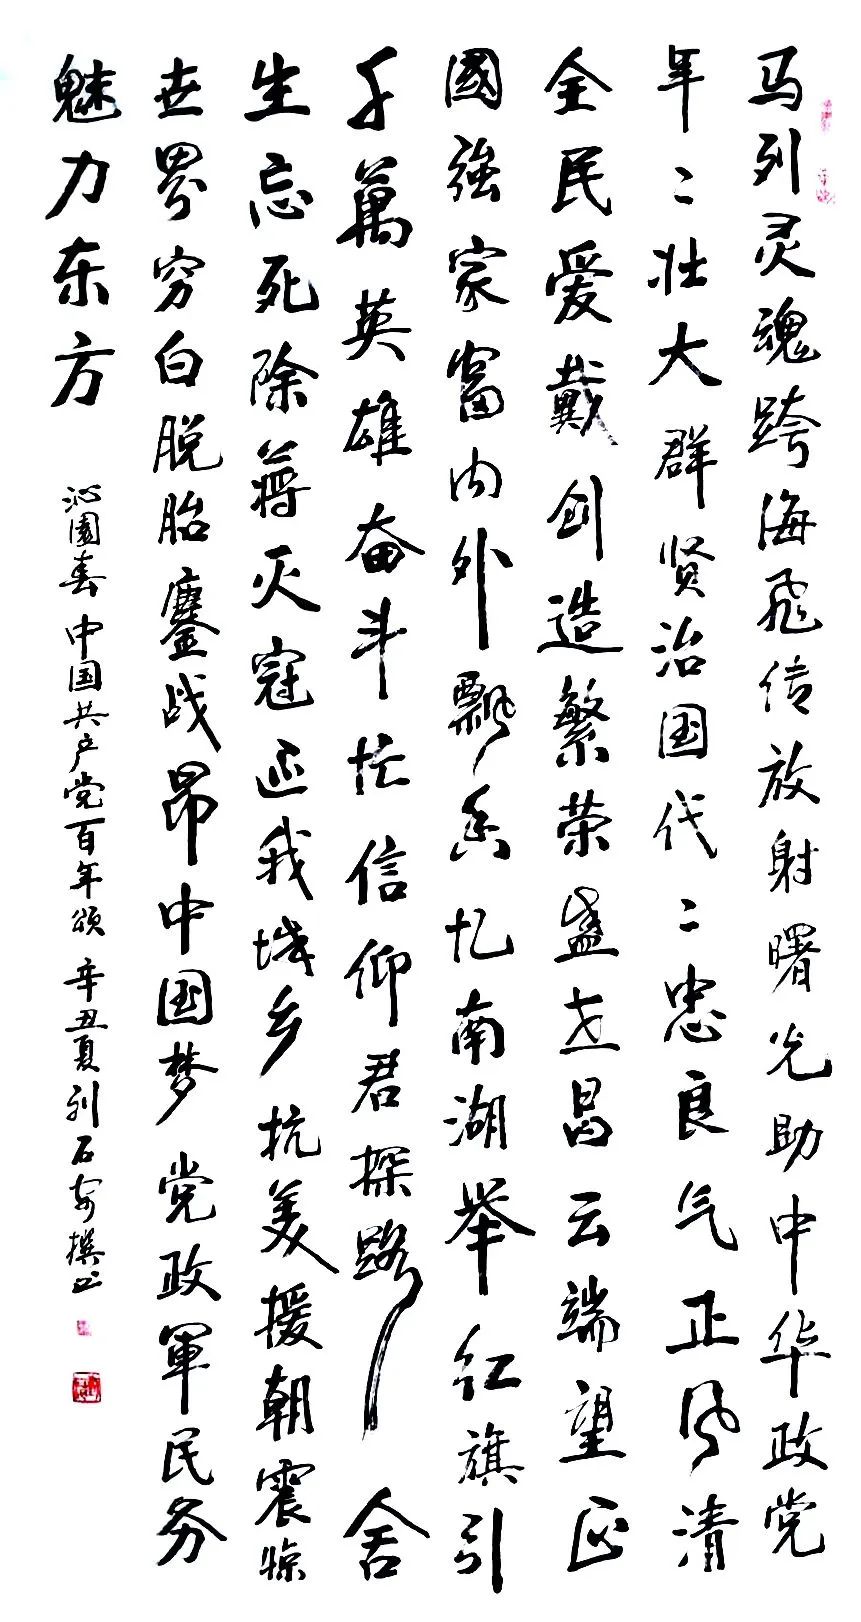 马列灵魂跨海飞传放射曙光助中华政党
年々壮大群贤治国代々忠良气正风清
全民爱戴创造繁荣盛世昌云端望正
國強家富内外飘香忆南湖举红旗引
千萬英雄奋斗忙信仰君探路舍
生忘死除蒋灭寇还我城乡抗美援朝震惊
世界穷白脱胎鏖战昂中国梦党政軍民务
魅力东方
沁園春中国共产党百年颂辛丑夏列石撰书